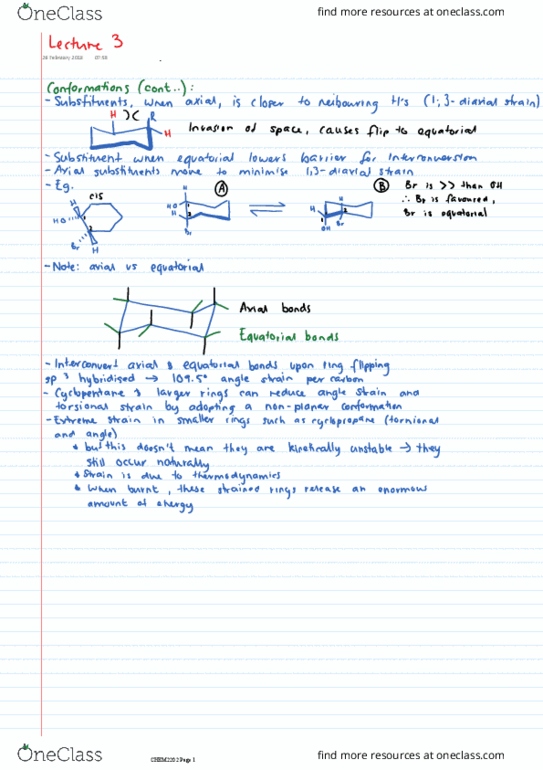 OneClass
find more resources at oneclass.com
Lecture 3
28 February, 2018 07:58
Conformations (cont..):
- Substituents, when axial, is closer to neibouring H's (1,3-diaxial strain)
H R
H
Invasion of space, causes flip to equatorial
- Substituent when equatorial lowers barrier for interconversion
- Axial substituents move to minimise 1,3-diaxial strain
- Eg.
cis
H
HO
1
2
Br
H
A
H
HO
1
H
2
Br
B
H
1
2
H
OH
Br
Br is >> than OH
∴ Br is favoured,
Br is equatorial
- Note: axial vs equatorial
Axial bonds
Equatorial bonds
- Interconvert axial & equatorial bonds upon ring flipping
sp³ hybridised → 109.5° angle strain per carbon
- Cyclopentane & larger rings can reduce angle strain and
torsional strain by adopting a non-planer conformation
- Extreme strain in smaller rings such as cyclopropane (torsional
and angle)
• but this doesn't mean they are kinetically unstable → they
still occur naturally
• Strain is due to thermodynamics
• When burnt, these strained rings release an enormous
amount of energy
OneClass
CHEM2202 Page 1
find more resources at oneclass.com